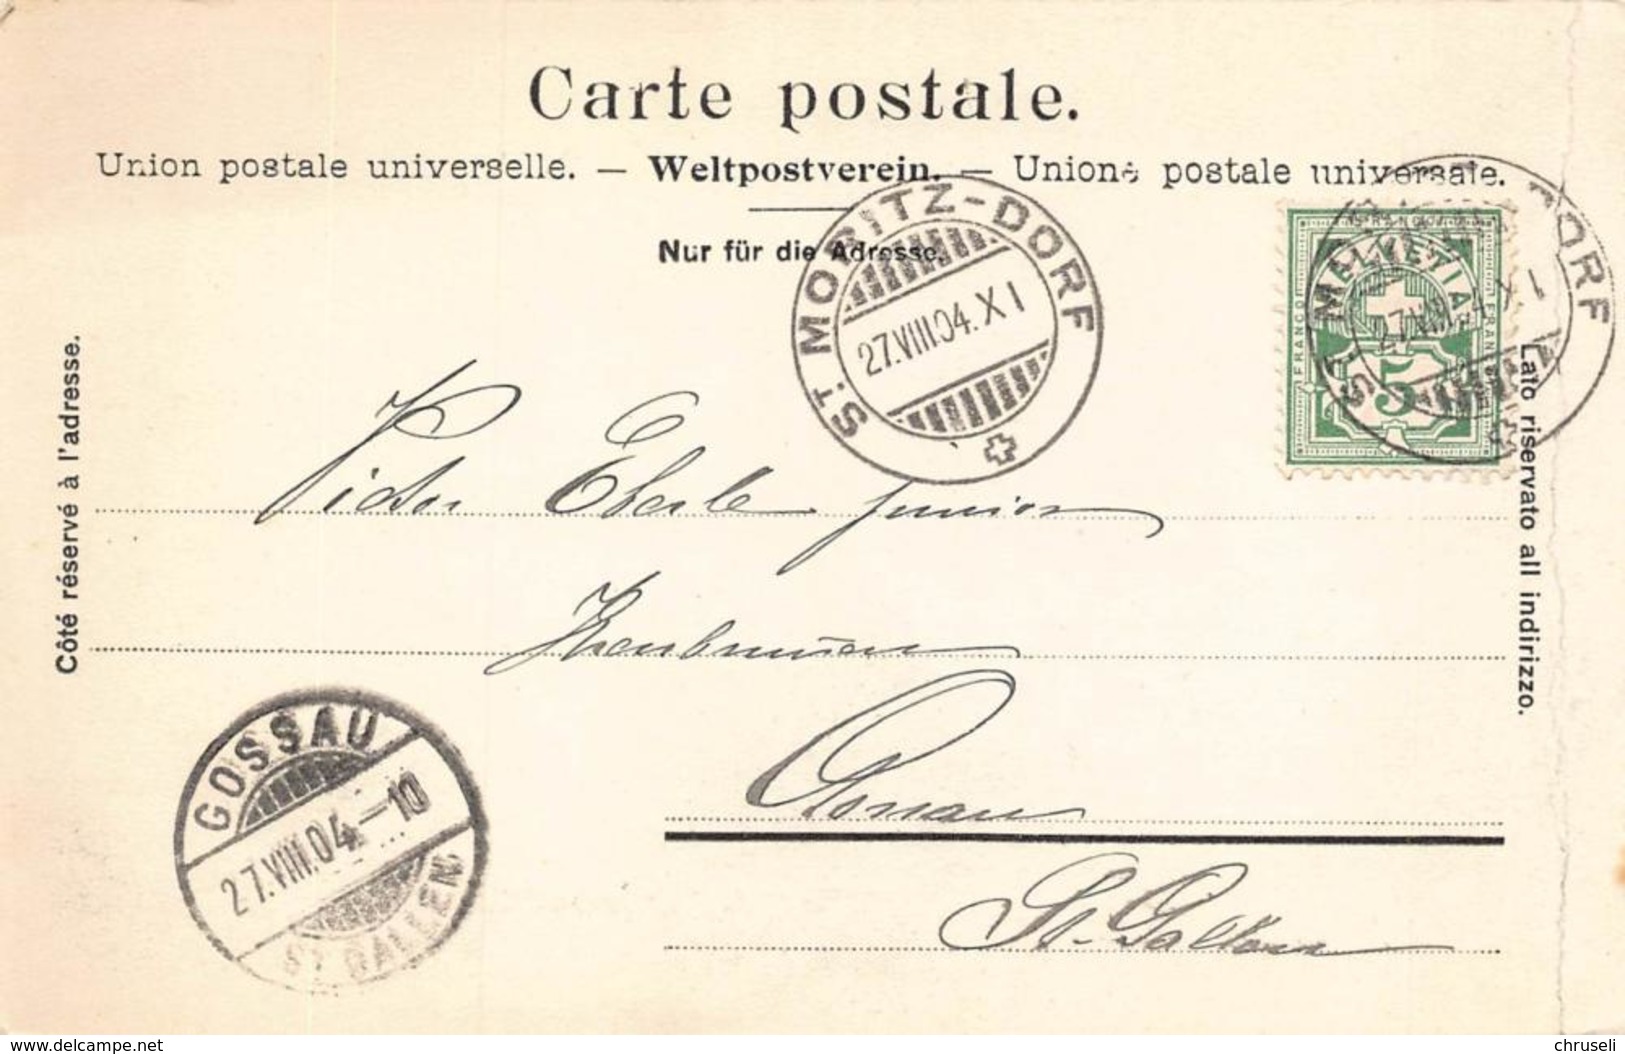 Carte postale.
Union postale universelle. — Weltpostverein. — Unione postale universale.
Nur für die Adresse.
Côté réservé à l'adresse.
Lato riservato all indirizzo.
ST. MORITZ-DORF
27.VIII.04.XI
ST. MORITZ-DORF
27.VIII.04.XI
FRANCO
HELVETIA
FRANCO
5
Victor Eberle junior
Gossau
St. Gallen
GOSSAU
27.VIII.04.–10
ST. GALLEN
www.delcampe.net
chruseli